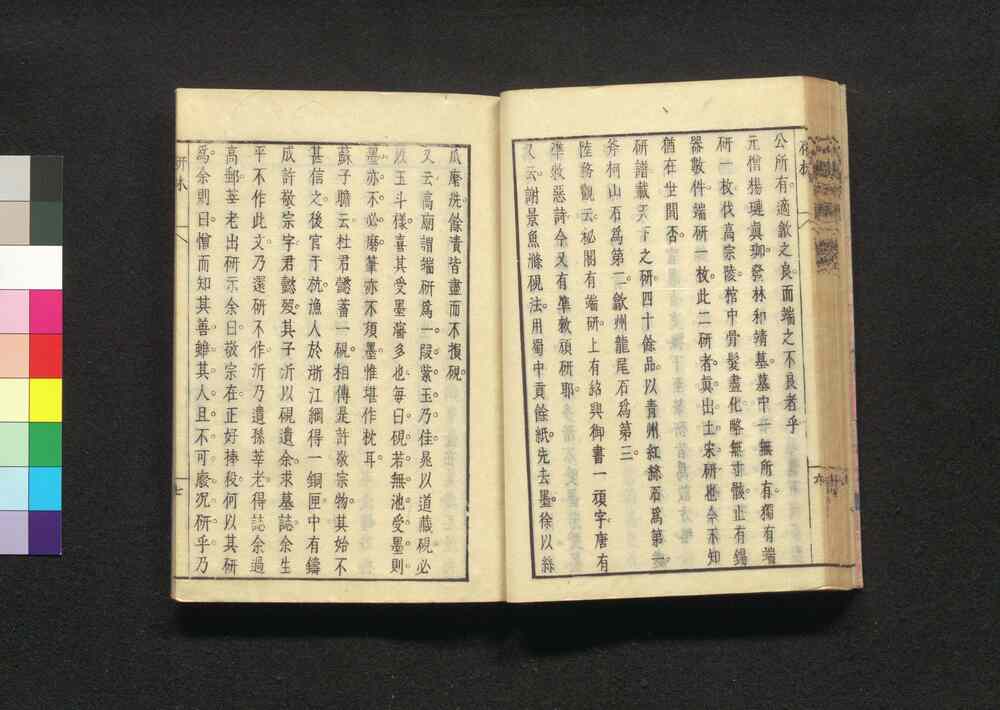 公所有適歙之良而端之不良者乎
元僧楊璉眞珈發林和靖墓墓中一無所有獨有端
研一枚伐高宗陵棺中骨髮盡化略無寸骸止有錫
器數件端研一枚此二研者眞出土宋研也今未知
猶在世間否
研譜載天下之研四十餘品以青州紅絲石爲第一
斧柯山石爲第二歙州龍尾石爲第三
陸務觀云秘閣有端研上有紹興御書一頑字唐有
準敕惡詩今又有準敕頑研耶
又云謝景魚滌硯法用蜀中貢餘紙先去墨徐以絲
瓜磨洗餘漬皆盡而不損硯
又云高廟謂端研爲一段紫玉乃佳晁以道藏硯必
玉斗樣喜其受墨瀋多也每曰硯若無池受墨則
墨亦不必磨筆亦不須墨惟堪作枕耳
蘇子瞻云杜君懿蓄一硯相傳是許敬宗物其始不
甚信之後官于杭漁人於浙江網得一銅匣中有鑄
成許敬宗字君懿歿其子沂以硯遺余求墓誌余生
平不作此文乃還研不作沂乃遺孫莘老得誌余過
高郵莘老出研示余曰敬宗在正好棒殺何以其研
爲余則曰憎而知其善雖其人且不可廢况研乎乃
研林
七